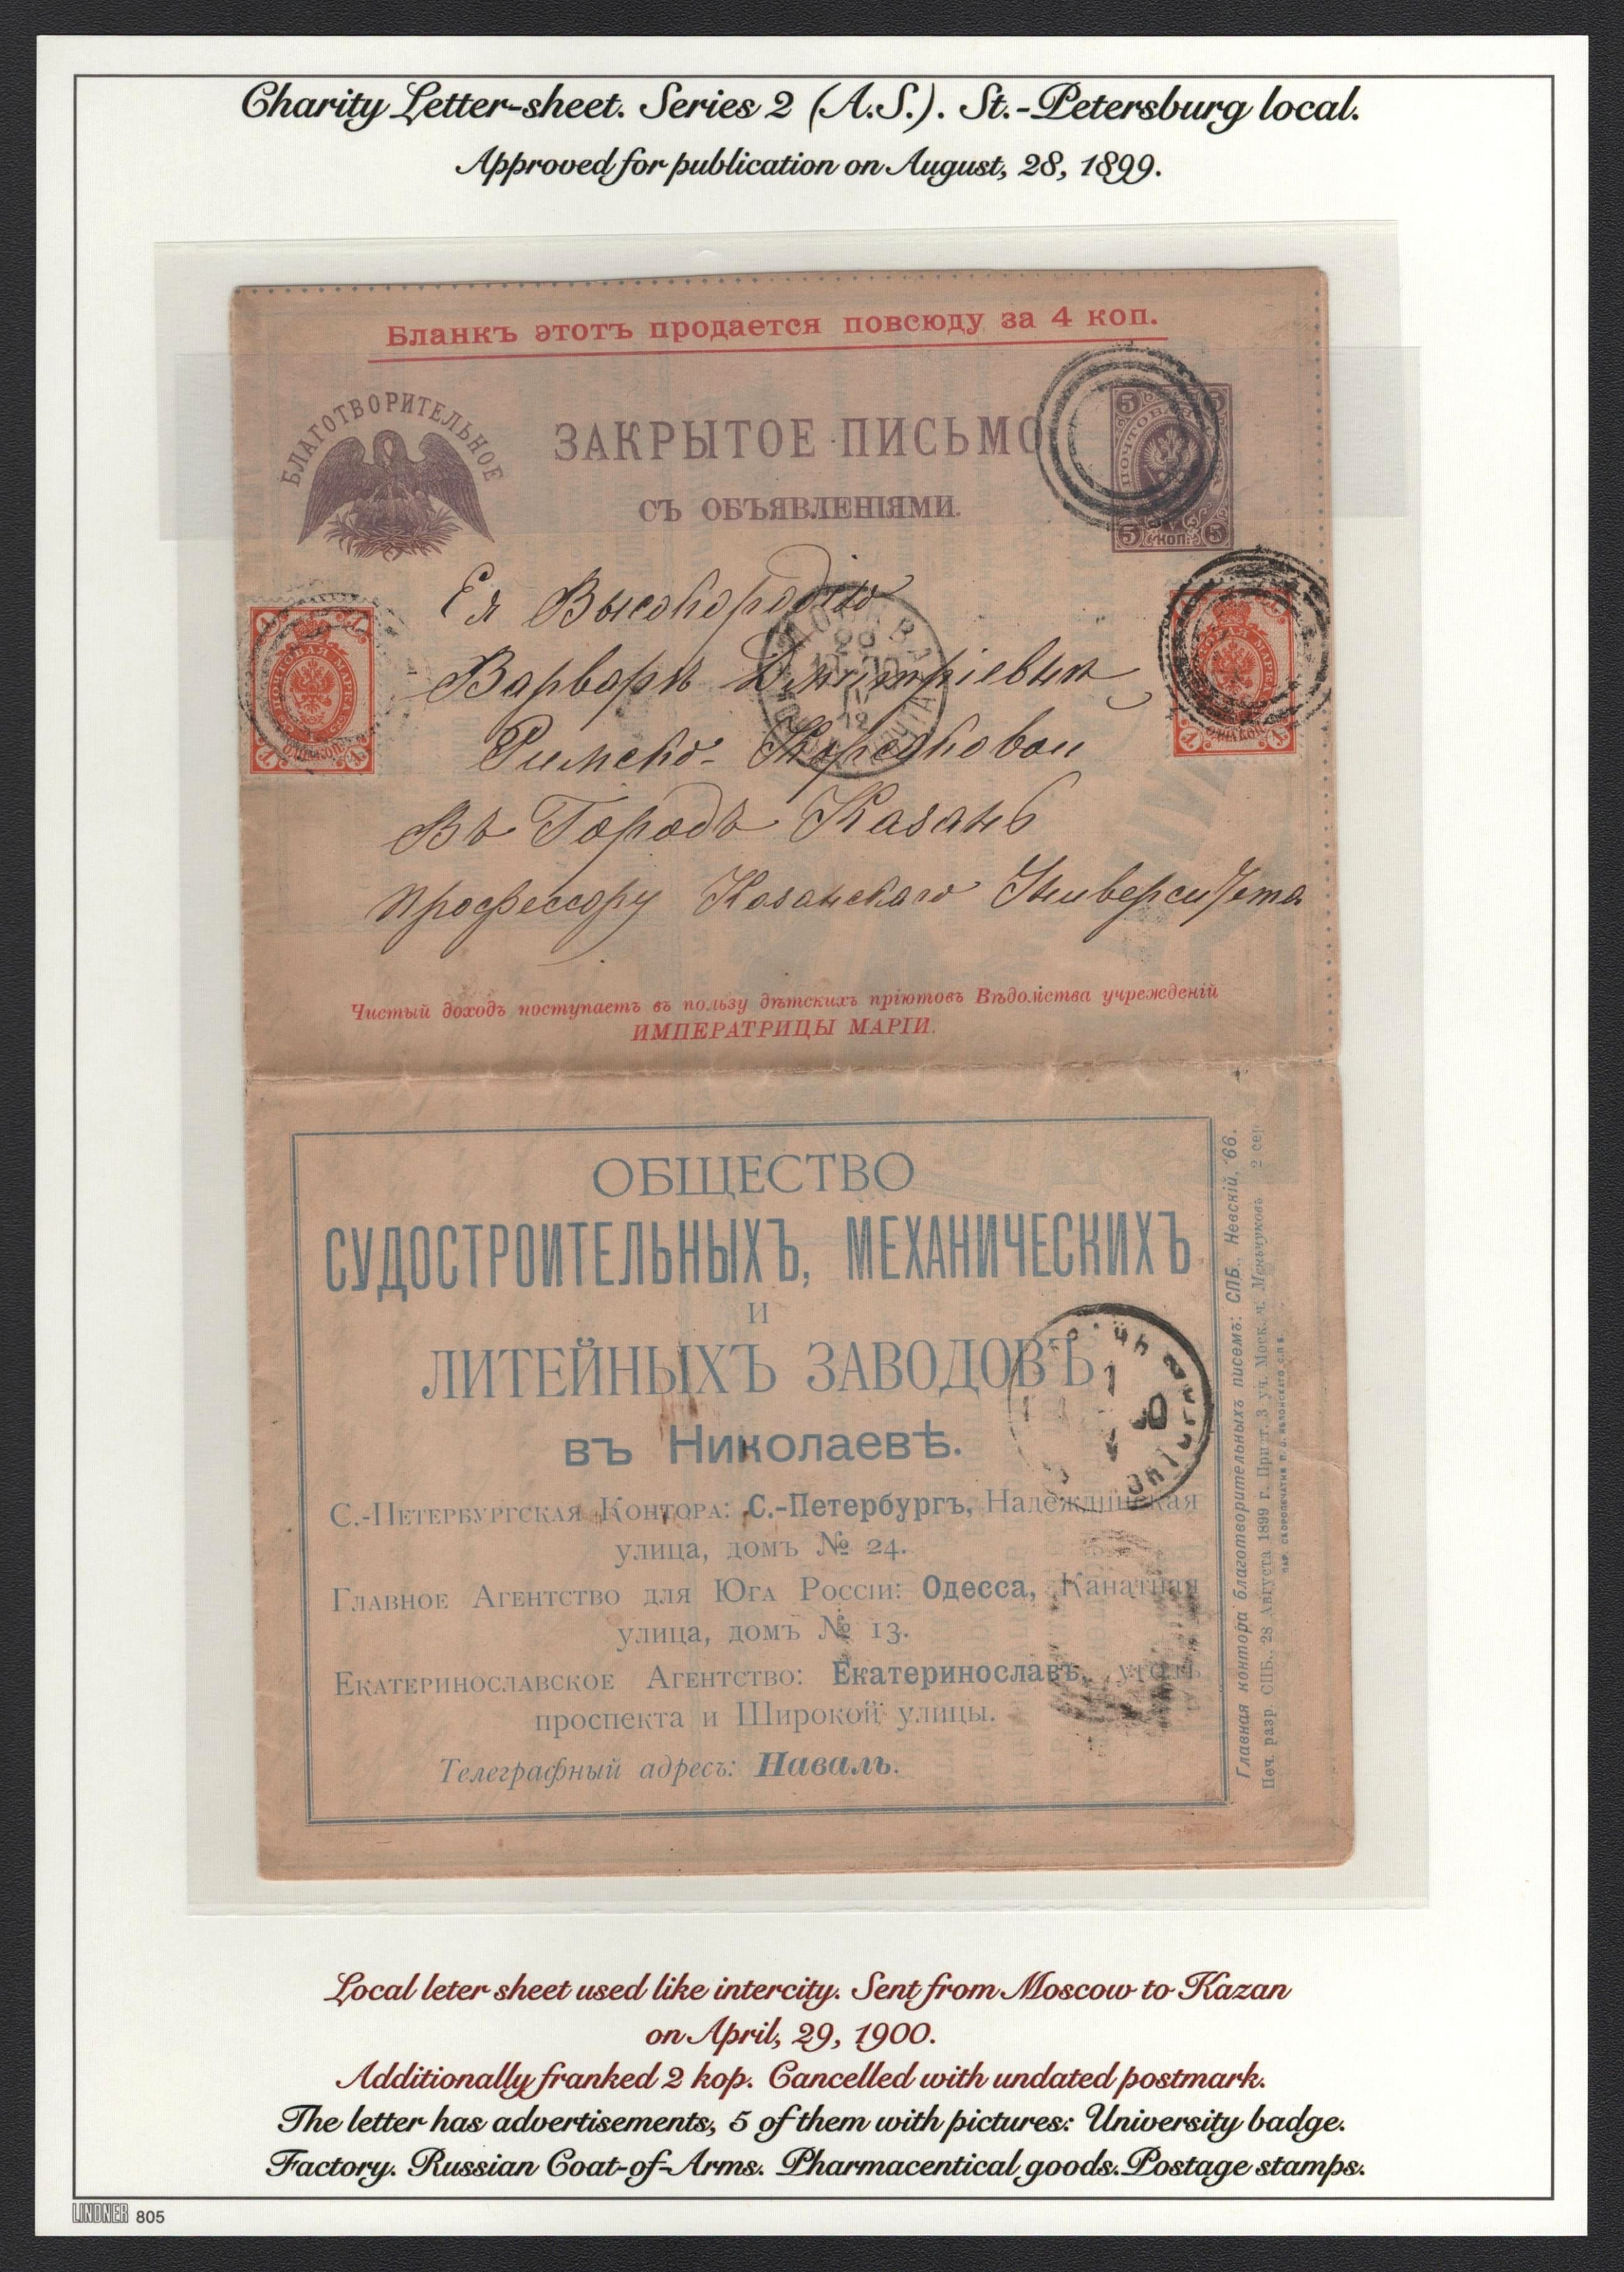 Charity Letter-sheet. Series 2 (A.S.). St.-Petersburg local.
Approved for publication on August, 28, 1899.
Бланкъ этотъ продается повсюду за 4 коп.
БЛАГОТВОРИТЕЛЬНОЕ
ЗАКРЫТОЕ ПИСЬМО
СЪ ОБЪЯВЛЕНІЯМИ.
5 5
ПОЧТОВАЯ
5 КОП. 5
Ея Высокородію
Варварѣ Дмитріевнѣ
Римско-Корсаковой
Въ Городъ Казань
Профессору Казанскаго Университета
1 1
ПОЧТОВАЯ МАРКА
1 1
Чистый доходъ поступаетъ въ пользу дѣтскихъ пріютовъ Вѣдомства учрежденій
ИМПЕРАТРИЦЫ МАРІИ.
ОБЩЕСТВО
СУДОСТРОИТЕЛЬНЫХЪ, МЕХАНИЧЕСКИХЪ
И
ЛИТЕЙНЫХЪ ЗАВОДОВЪ
въ Николаевѣ.
С.-Петербургская Контора: С.-Петербургъ, Надеждинская
улица, домъ № 24.
Главное Агентство для Юга Россіи: Одесса, Канатная
улица, домъ № 13.
Екатеринославское Агентство: Екатеринославъ, уголъ
проспекта и Широкой улицы.
Телеграфный адресъ: Наваль.
Главная контора благотворительныхъ писемъ: СПБ., Невскій, 66.
Печ. разр. СПБ., 28 Августа 1899 г. Прист. 3 уч. Моск. ч. Мельчуковъ 2 сер
Local leter sheet used like intercity. Sent from Moscow to Kazan
on April, 29, 1900.
Additionally franked 2 kop. Cancelled with undated postmark.
The letter has advertisements, 5 of them with pictures: University badge.
Factory. Russian Coat-of-Arms. Pharmacentical goods. Postage stamps.
LINDNER 805